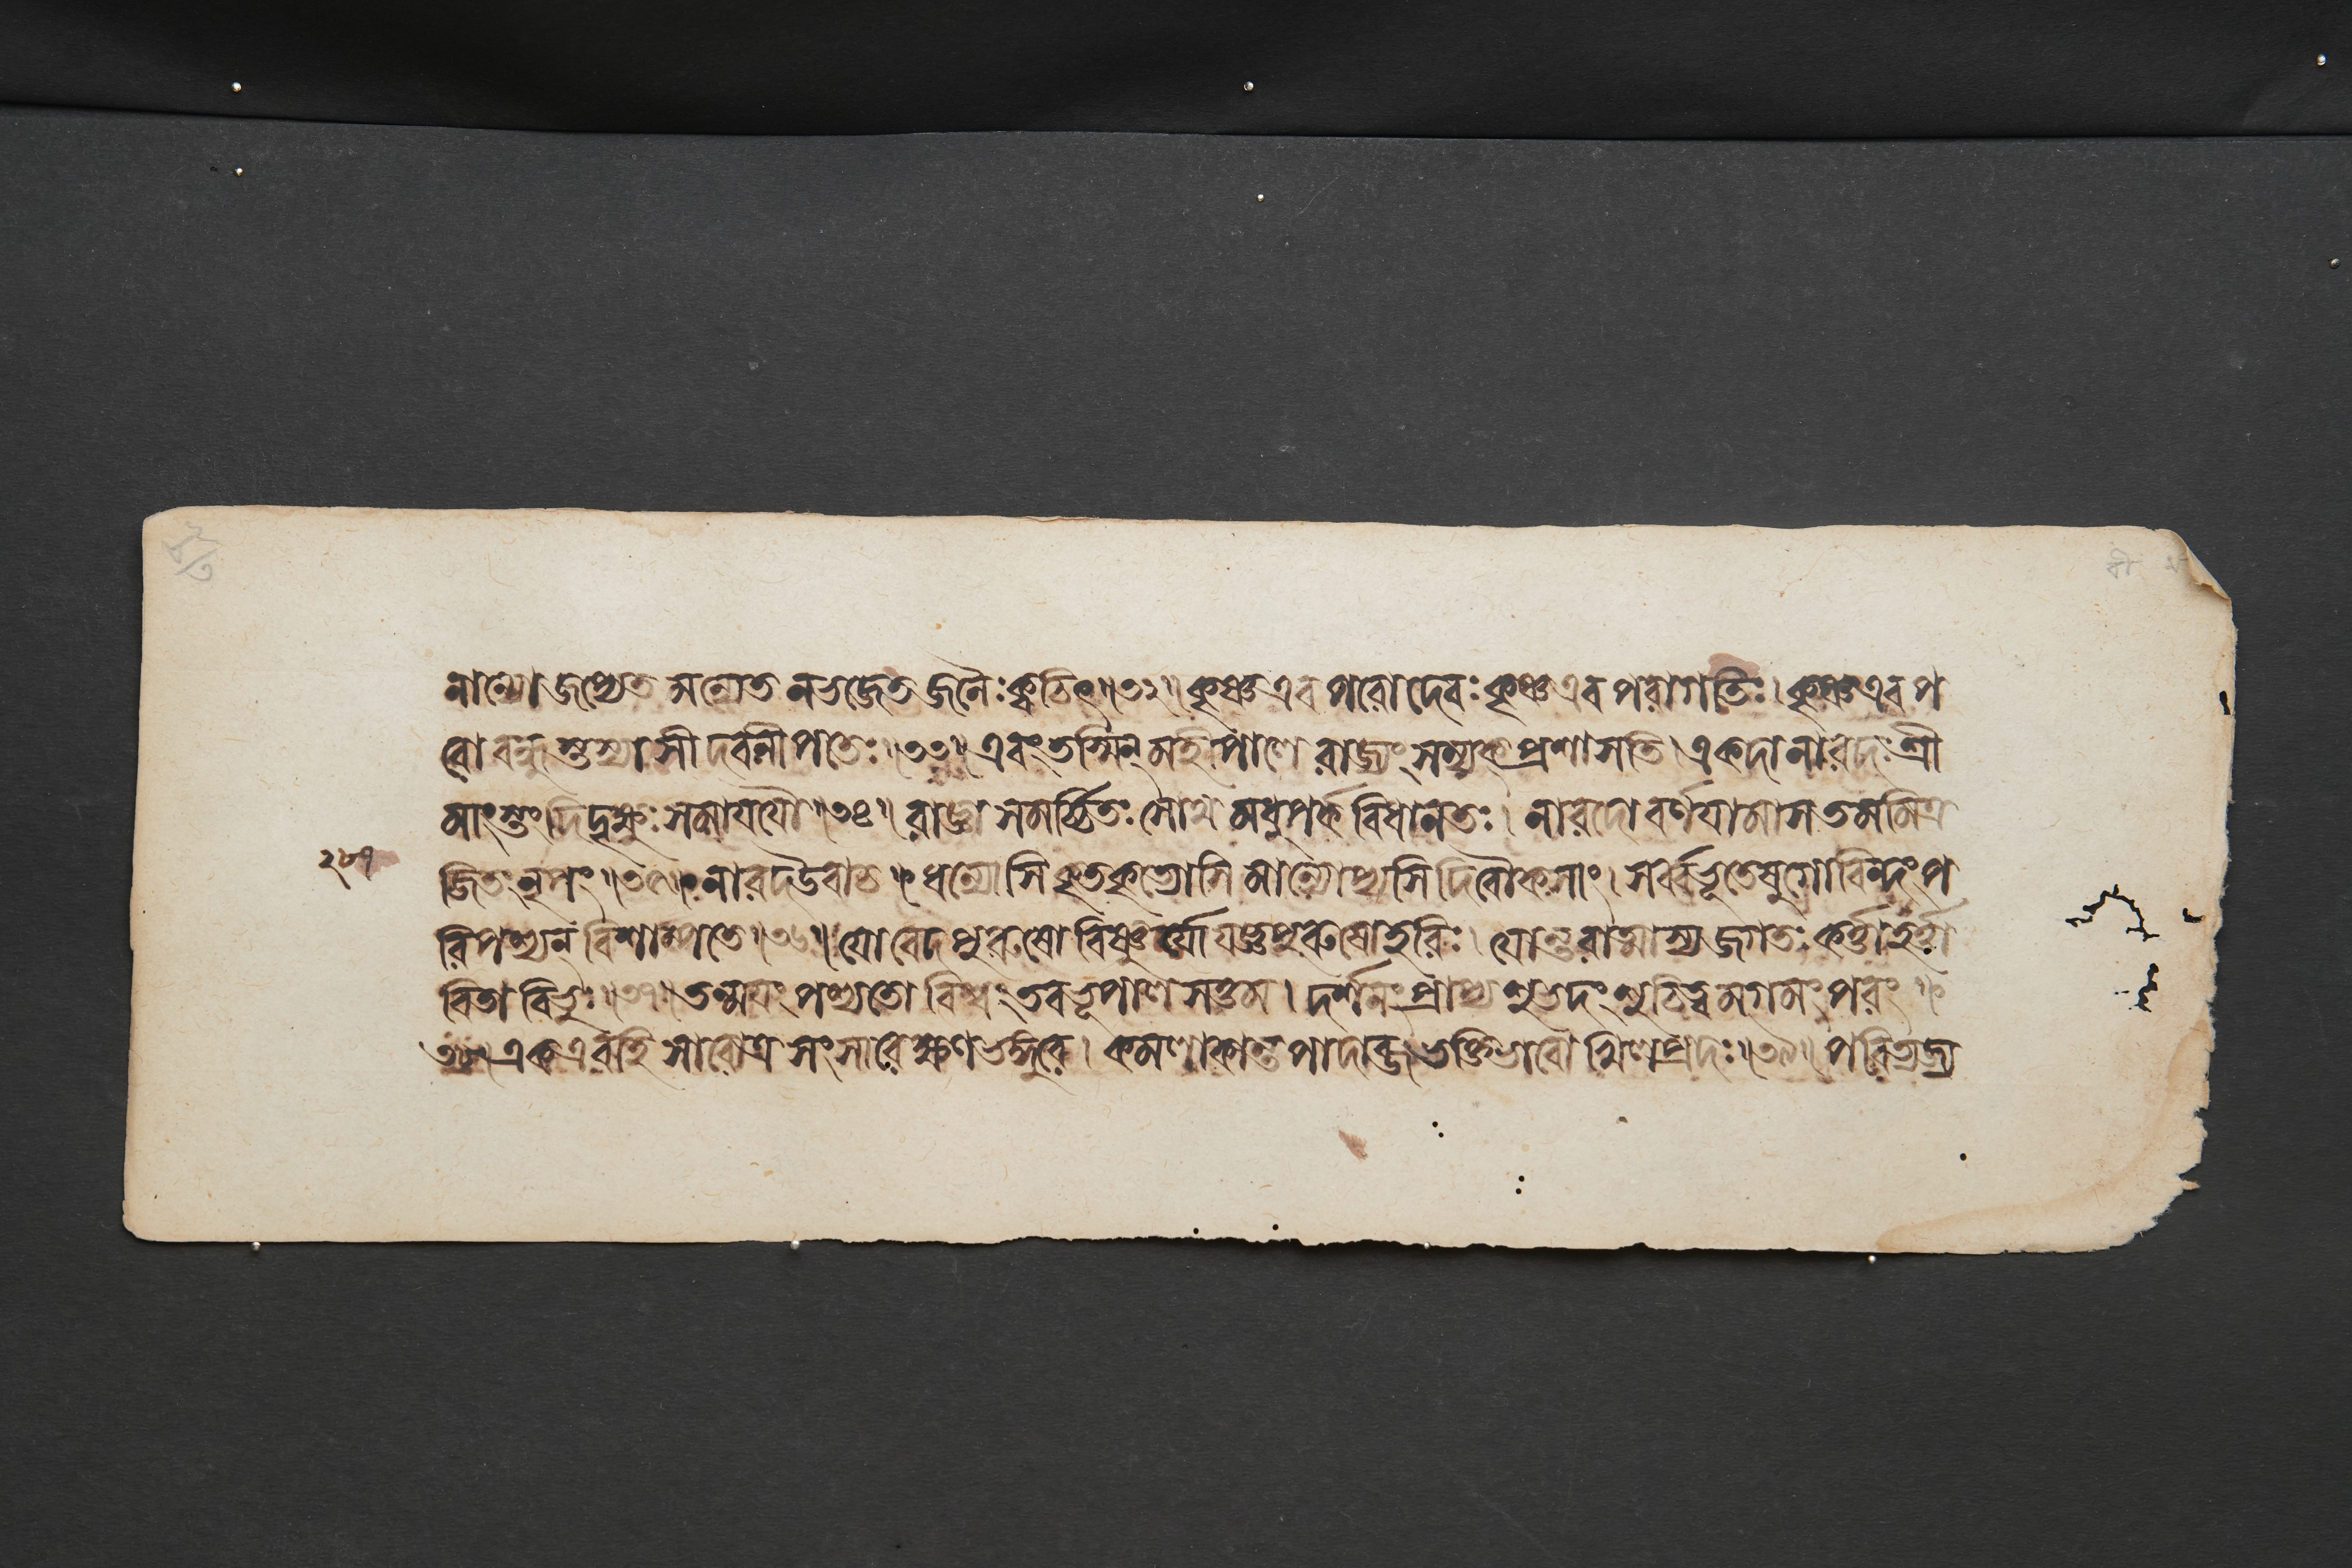 নান্যো জপ্যেত মন্যেত ন ভজেত জনৈঃ ক্বচিৎ॥৩২॥ কৃষ্ণ এব পরো দেবঃ কৃষ্ণ এব পরা গতিঃ। কৃষ্ণ এব প
রো বন্ধুস্তস্যাসীদবনীপতেঃ॥৩৩॥ এবং তস্মিন্ মহীপালে রাজ্যং সম্যক্ প্রশাসতি। একদা নারদঃ শ্রী
মাংস্তং দিদৃক্ষুঃ সমাযযৌ॥৩৪॥ রাজ্ঞা সমর্চ্চিতঃ সোথ মধুপর্কবিধানতঃ। নারদো বর্ণযামাস তমমিত্র
২৮৭
জিতং নৃপং॥৩৫॥ নারদ উবাচ ধন্যোসি কৃতকৃত্যোসি মান্যোপ্যসি দিবৌকসাং। সর্ব্বভূতেষু গোবিন্দং প
রিপশ্যন্ বিশাম্পতে॥৩৬॥ যো বেদপুরুষো বিষ্ণুর্যো যজ্ঞপুরুষো হরিঃ। যোন্তরাত্মাস্য জগতঃ কর্ত্তা হর্ত্তা
বিতা বিভুঃ॥৩৭॥ তন্মযং পশ্যতো বিশ্বং তব ভূপালসত্তম। দর্শনং প্রাপ্য শুভদং শুচিত্বমগমং পরং
৩৮॥ এক এব হি সারোত্র সংসারে ক্ষণভঙ্গুরে। কমলাকান্তপাদাব্জভক্তিভাবো খিলপ্রদঃ॥৩৯॥ পরিত্যজ্য